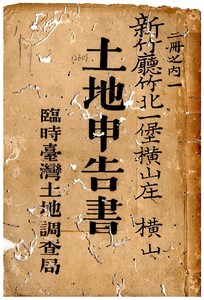 二冊之内一
新竹廳竹北一堡橫山庄 橫山
土地申告書
臨時臺灣土地調查局